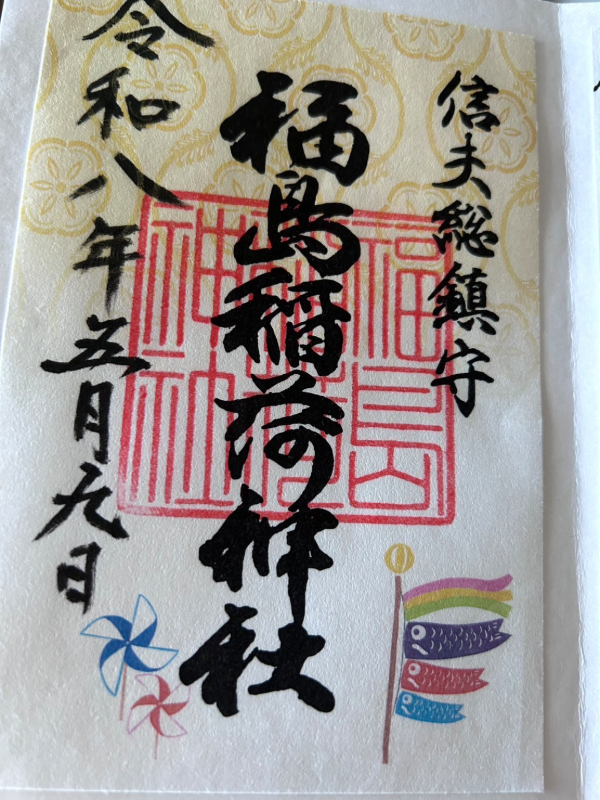 信夫総鎮守
福島稲荷神社
令和八年五月九日
福島
稲荷
神社